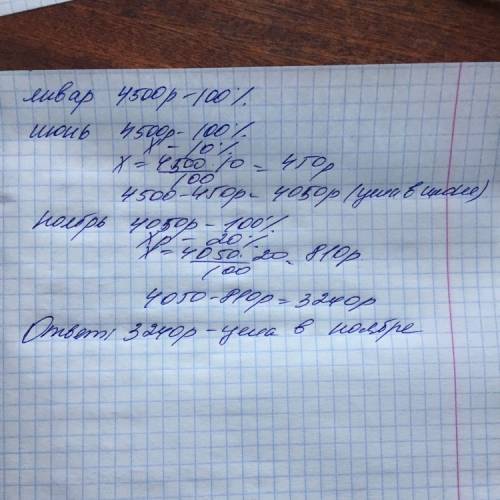 январ 4500р - 100%
июнь 4500р - 100%
X - 10%
X = 4500 · 10 / 100 = 450р
4500 - 450р = 4050р (цена в июне)
ноябрь 4050р - 100%
Xр - 20%
X = 4050 · 20 / 100 = 810р
4050 - 810р = 3240р
Ответ: 3240р - цена в ноябре